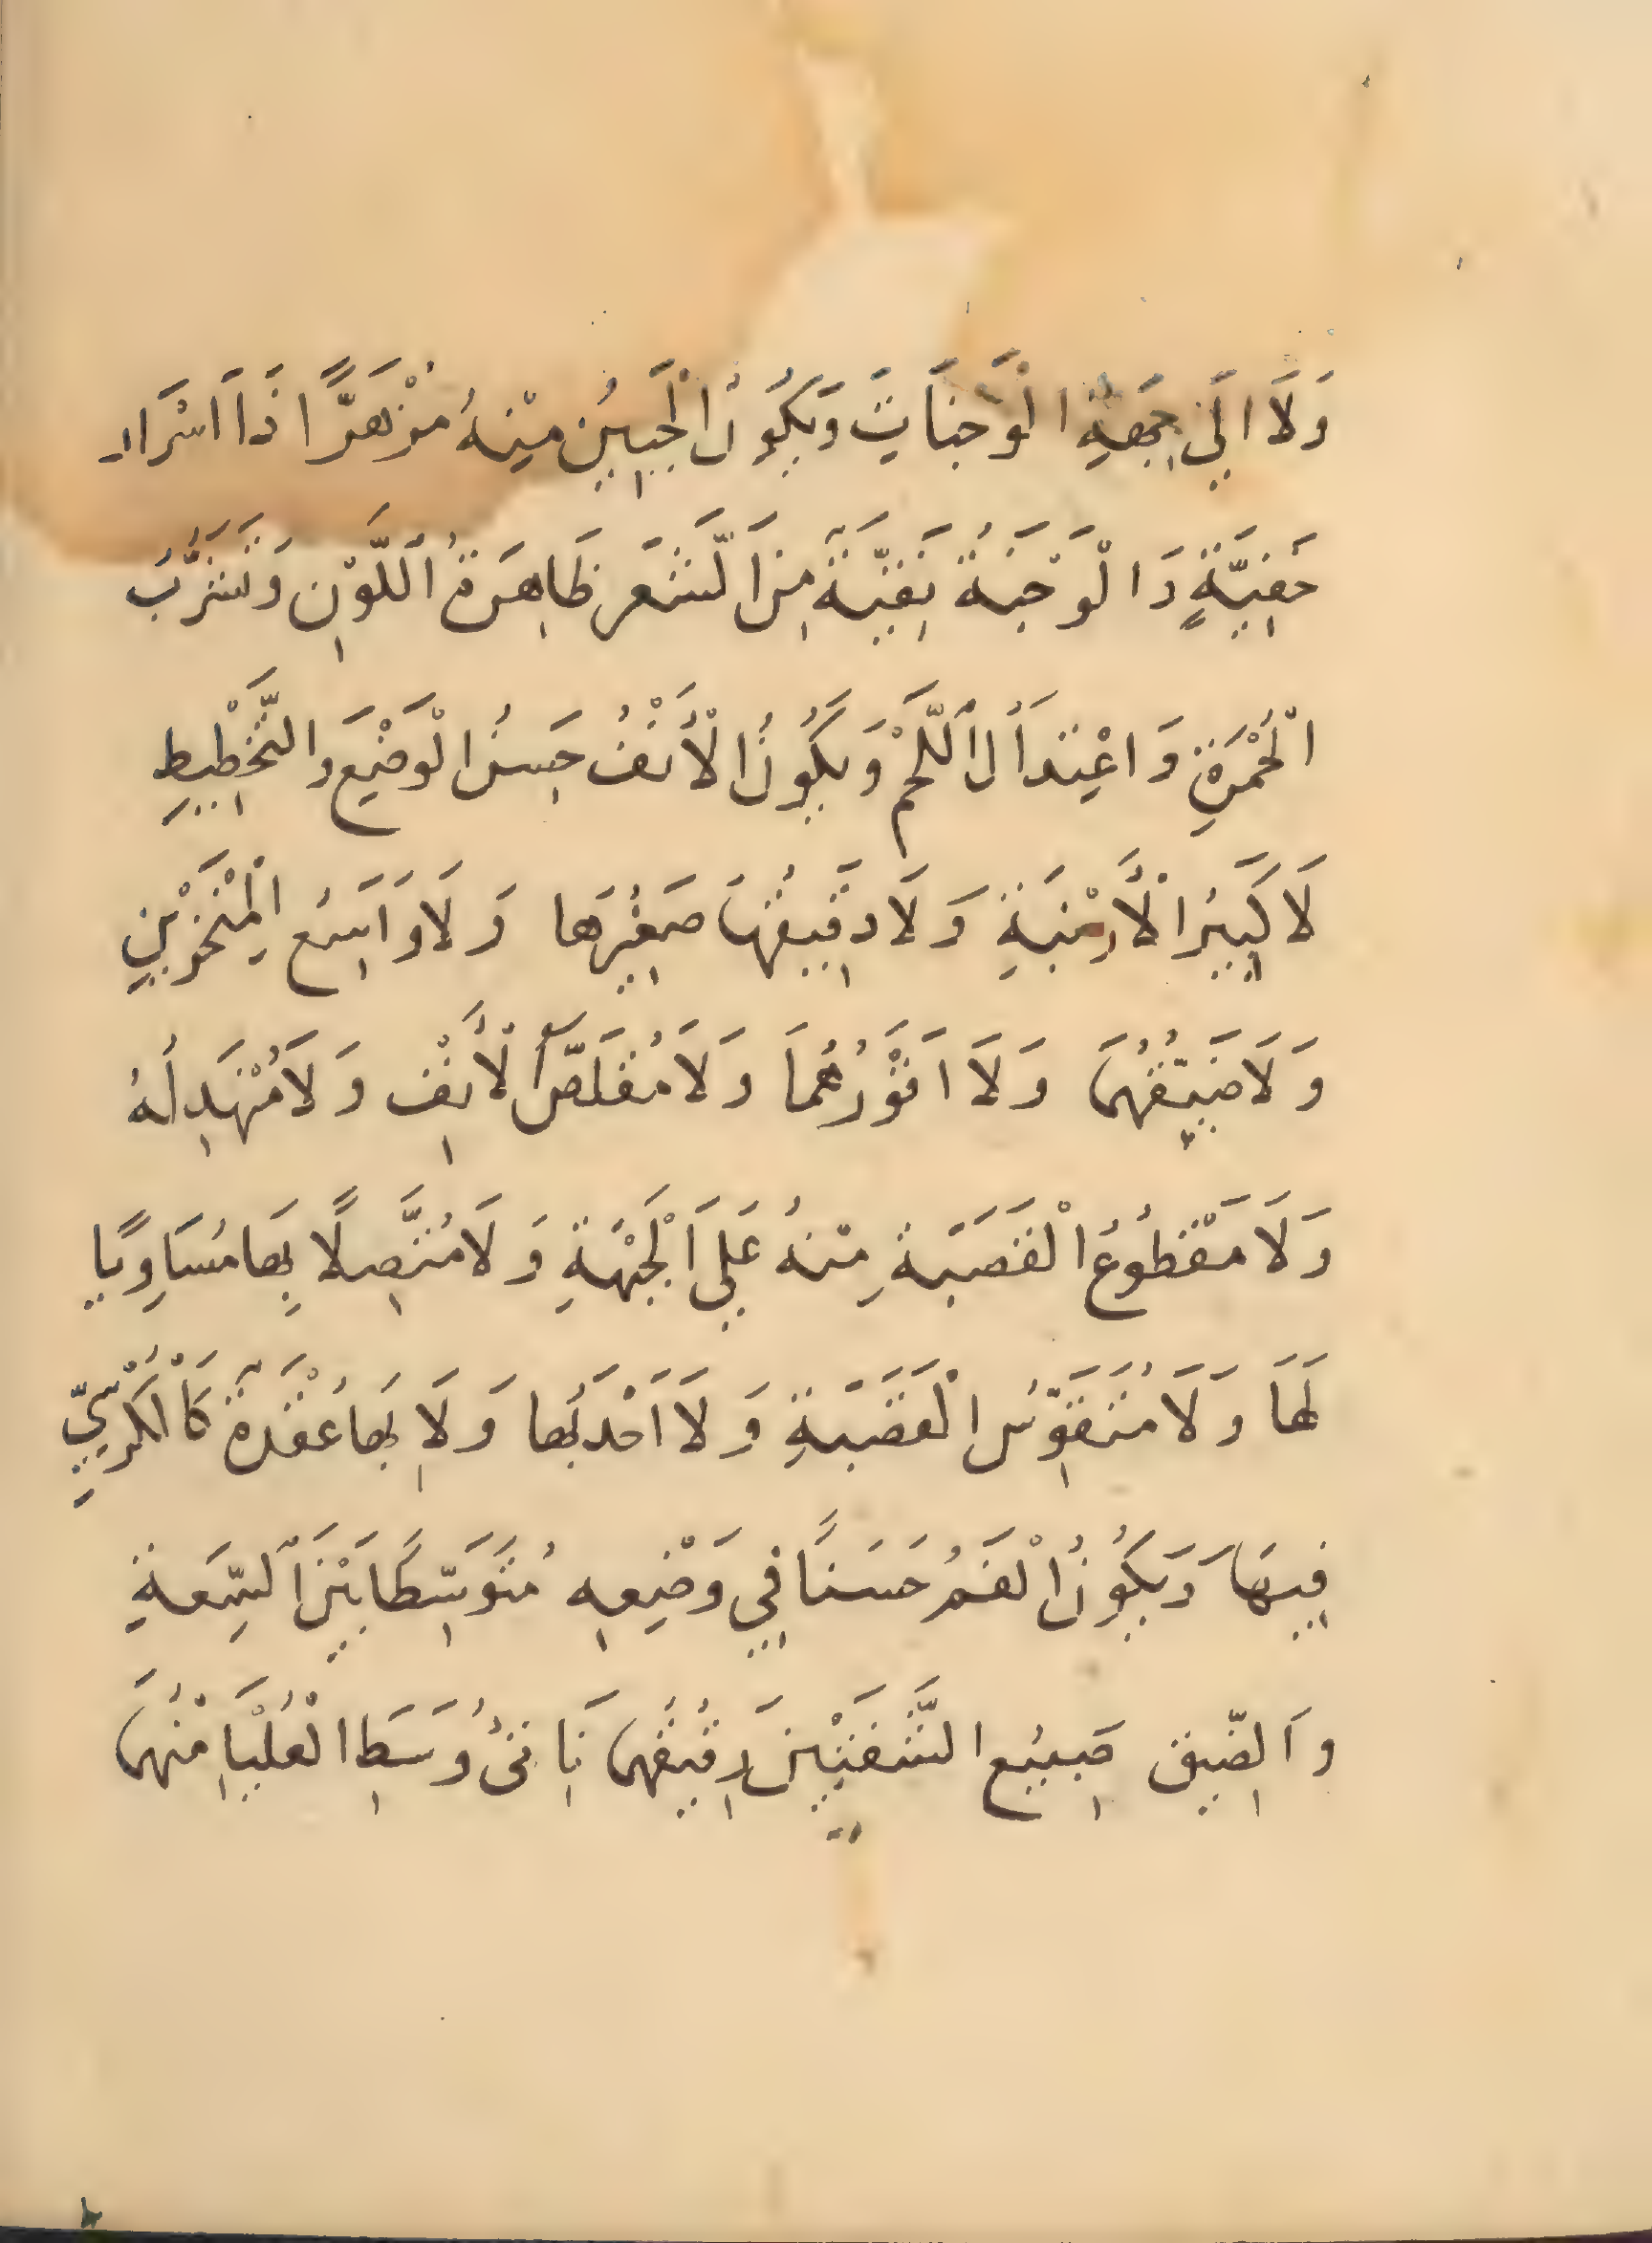 وَلَا اِلَي جِهَةِ الْوَجَنَاتِ وَيَكُونُ الْجَبِينُ مِنْهُ مُزْهَرًّا ذَا اَسْرَار
خَفِيَّةٍ وَالْوَجْنَةُ نَقِيَّةً مِنَ الشَّعَرِ ظَاهِرَةُ اللَّوْنِ وَتَشَرُّبُ
الْحُمْرَةِ وَاعْتِدَالُ اللَّحْمِ وَيَكُونُ الْأَنْفُ حَسِنُ الْوَضْعِ وَالتَّخْطِيطِ
لَا كَبِيرُ الْأَرْنَبَةِ وَلَا دَقِيقُهَا صَغِيرُهَا وَلَا وَاسِعُ الْمِنْخَرَيْنِ
وَلَا ضَيِّقُهُمَا وَلَا اَفْوَرُهُمَا وَلَا مُقَلَّصُ الْأَنْفِ وَلَا مُنْهَدِلُهُ
وَلَا مَقْطُوعُ الْقَصَبَةِ مِنْهُ عَلَي الْجَبْهَةِ وَلَا مُتَّصِلًا بِهَا مُسَاوِيًا
لَهَا وَلَا مُتَقَوِّسُ الْقَصَبَةِ وَلَا اَحْدَبُهَا وَلَا بِهَا عُقْدَةٌ كَالْكُرْسِيِّ
فِيهَا وَيَكُونُ الْفَمُ حَسَنًا فِي وَضْعِهِ مُتَوَسِّطًا بَيْنَ السِّعَةِ
وَالضِّيقِ صَبِيعُ الشَّفَتَيْنِ رَقِيقُهُمَا نَاتِئُ وَسَطِ الْعُلْيَا مِنْهُمَا